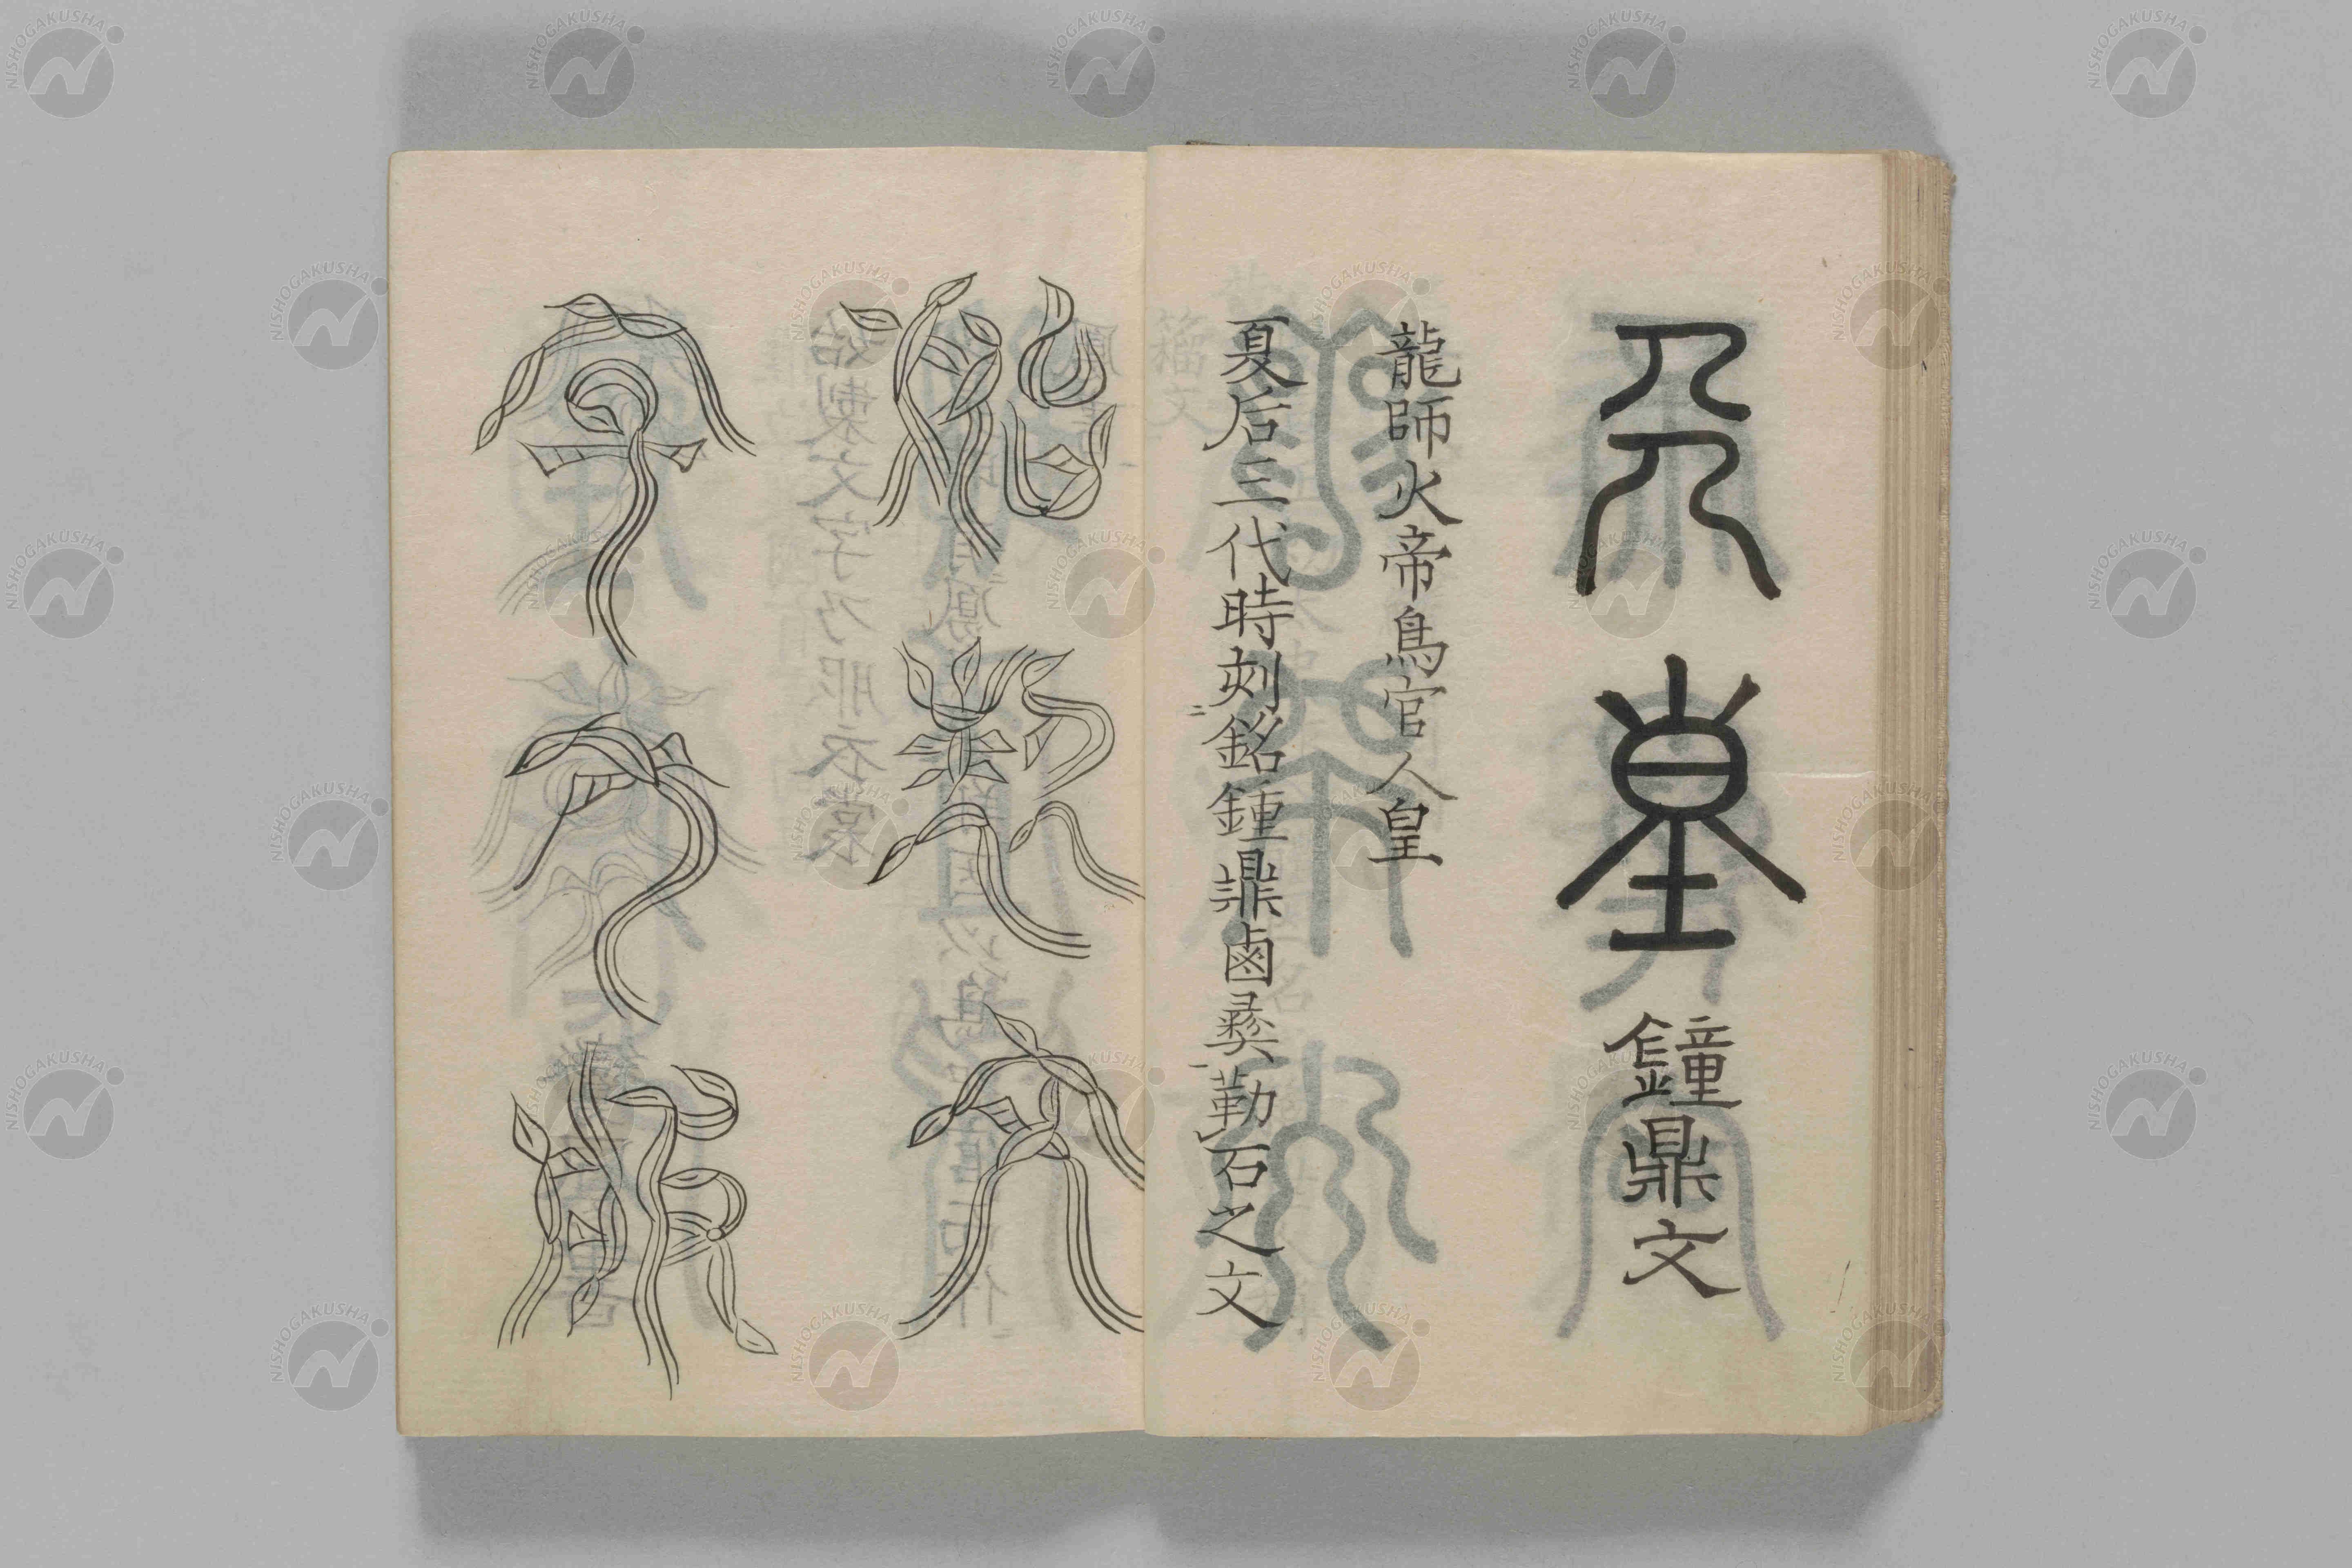 人皇 鐘鼎文
龍師火帝鳥官人皇
夏后三代時刻銘鍾鼎鹵彝勒石之文
始製文
字乃服
NISHOGAKUSHA